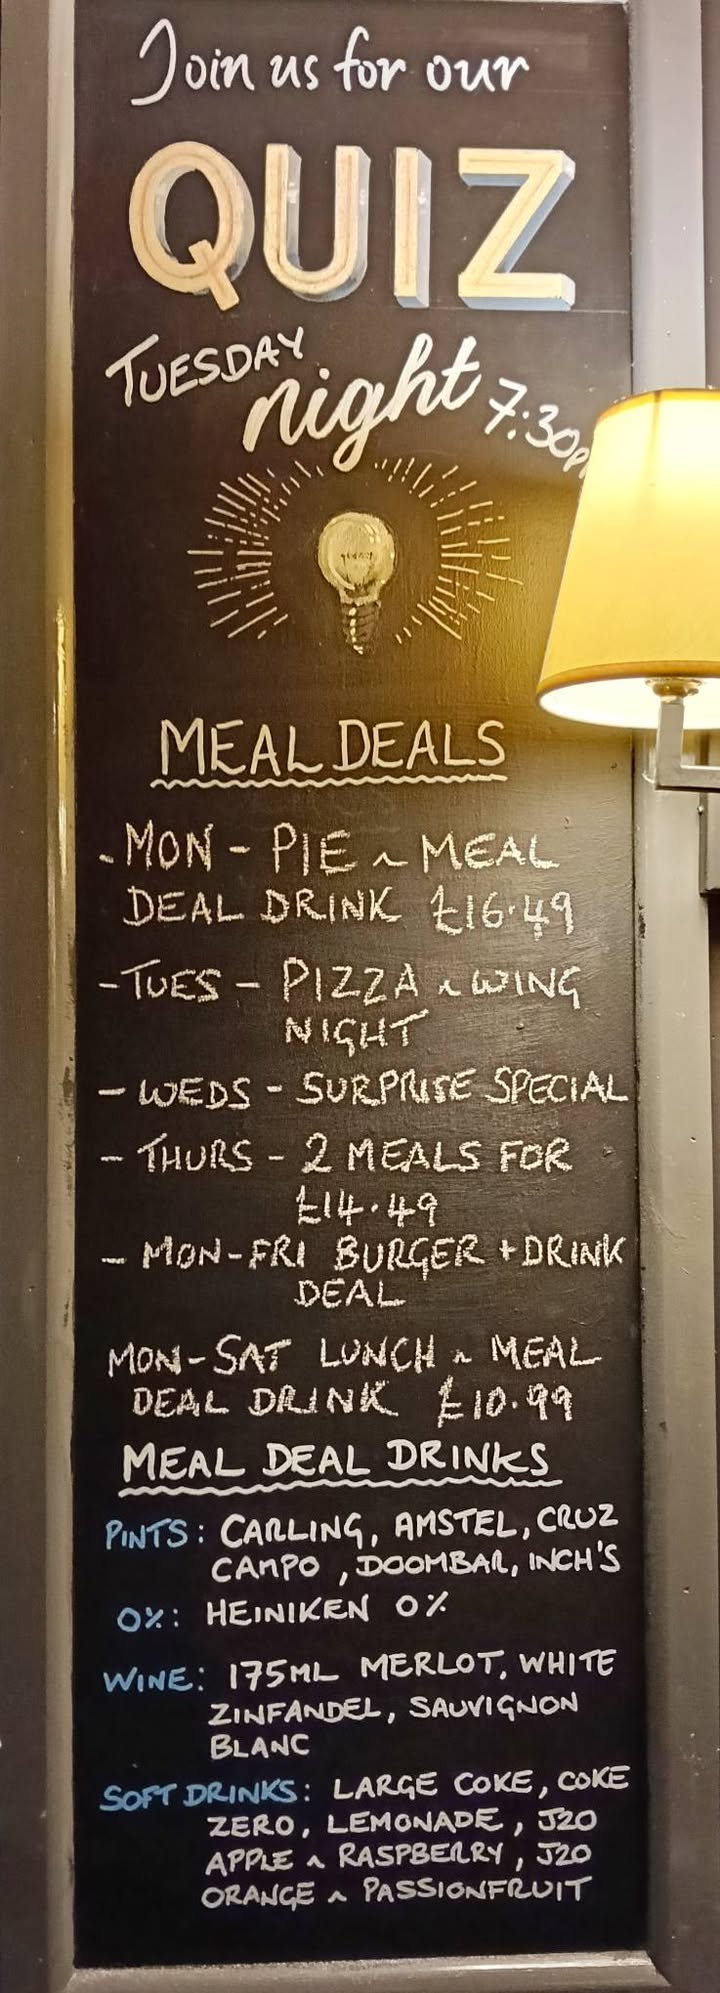 Join us for our
QUIZ
TUESDAY night 7:30p
MEAL DEALS
- MON - PIE ~ MEAL
DEAL DRINK £16.49
- TUES - PIZZA ~ WING
NIGHT
- WEDS - SURPRISE SPECIAL
- THURS - 2 MEALS FOR
£14.49
- MON-FRI BURGER + DRINK
DEAL
MON-SAT LUNCH ~ MEAL
DEAL DRINK £10.99
MEAL DEAL DRINKS
PINTS: CARLING, AMSTEL, CRUZ
CAMPO, DOOMBAR, INCH'S
0%: HEINIKEN 0%
WINE: 175ML MERLOT, WHITE
ZINFANDEL, SAUVIGNON
BLANC
SOFT DRINKS: LARGE COKE, COKE
ZERO, LEMONADE, J20
APPLE ~ RASPBERRY, J20
ORANGE ~ PASSIONFRUIT